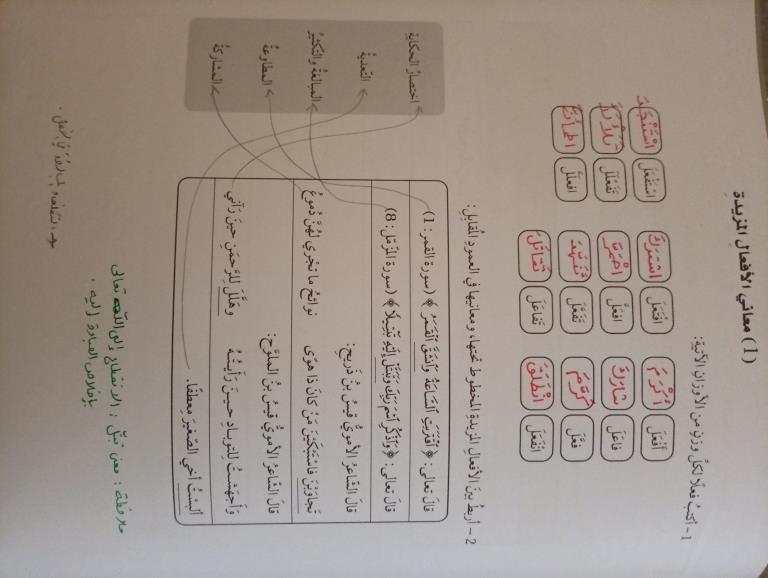 (1) معاني الأفعال المزيدة
1- أكتبُ فعلًا لكلِّ وزن من الأوزانِ الآتية:
أَفْعَلَ أَكْرَمَ افْتَعَلَ اشْتَرَكَ اسْتَفْعَلَ اسْتَنْجَدَ
فاعَلَ شارَكَ افعَلَّ احْمَرَّ تَفَعْلَلَ
فعَّلَ كَرَّمَ تَفَعَّلَ افعَلَلَّ اطمأنَّ
انْفَعَلَ انْطَلَقَ تَفاعَلَ
2- أربطُ بينَ الأفعالِ المزيدةِ المخطوطِ تحتَها، ومعانيها في العمودِ المُقابِلِ:
قالَ تعالى: ﴿ٱقْتَرَبَتِ ٱلسَّاعَةُ وَٱنشَقَّ ٱلْقَمَرُ﴾ (سورة القمر: 1)
قالَ تعالى: ﴿وَٱذْكُرِ ٱسْمَ رَبِّكَ وَتَبَتَّلْ إِلَيْهِ تَبْتِيلًا﴾ (سورة المزّمل: 8)
قالَ الشّاعرُ الأمويُّ قيسُ بنُ ذَريح:
تَجاوَبْنَ فَاسْتَبْكَيْنَ مَنْ كانَ ذا هوًى نوائحُ ما تجري لهُنَّ دُموعُ
قالَ الشّاعرُ الأمويُّ قيسُ بنُ الملوَّح:
وَأَجهَشْتُ للتوبادِ حينَ رَأَيتُهُ وهَلَّلَ للرَّحمَنِ حينَ رَآني
ألبسْتُ أخي الصّغيرَ مِعطفًا.
اختصارُ الحكايةِ
التّعديةُ
المبالغةُ والتّكثيرُ
المطاوعةُ
المشاركةُ
ملاحظة: معنى تبتّل: الانقطاع إلى الله تعالى
بإخلاص العبادة إليه.